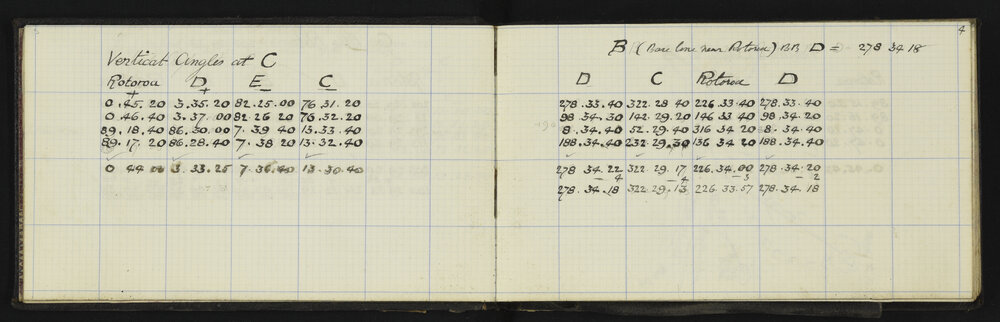 Vertical Angles at C
Rotoroa D E C
+ + - -
0.45.20 3.35.20 82.25.00 76.31.20
0.46.40 3.37.00 82.26 20 76.32.20
89.18.40 86.30.00 7.39 40 13.33.40
89.17.20 86.28.40 7.38 20 13.32.40
0 44 00 3.33.25 7.36.40 13.30.40
4
B (Base line near Rotoroa) BB D = 278 34 18
D C Rotoroa D
278.33.40 322.28 40 226 33.40 278.33.40
98 34.30 142.29.20 146 33 40 98.34.20
8.34.40 52.29.40 316 34 20 8.34.40
188.34.40 232.29.30 136 34 20 188.34.40
278 34.22 322 29.17 226.34.00 278.34.20
- 4 - 4 3 - 2
278.34.18 322 29.13 226.33.57 278.34.18